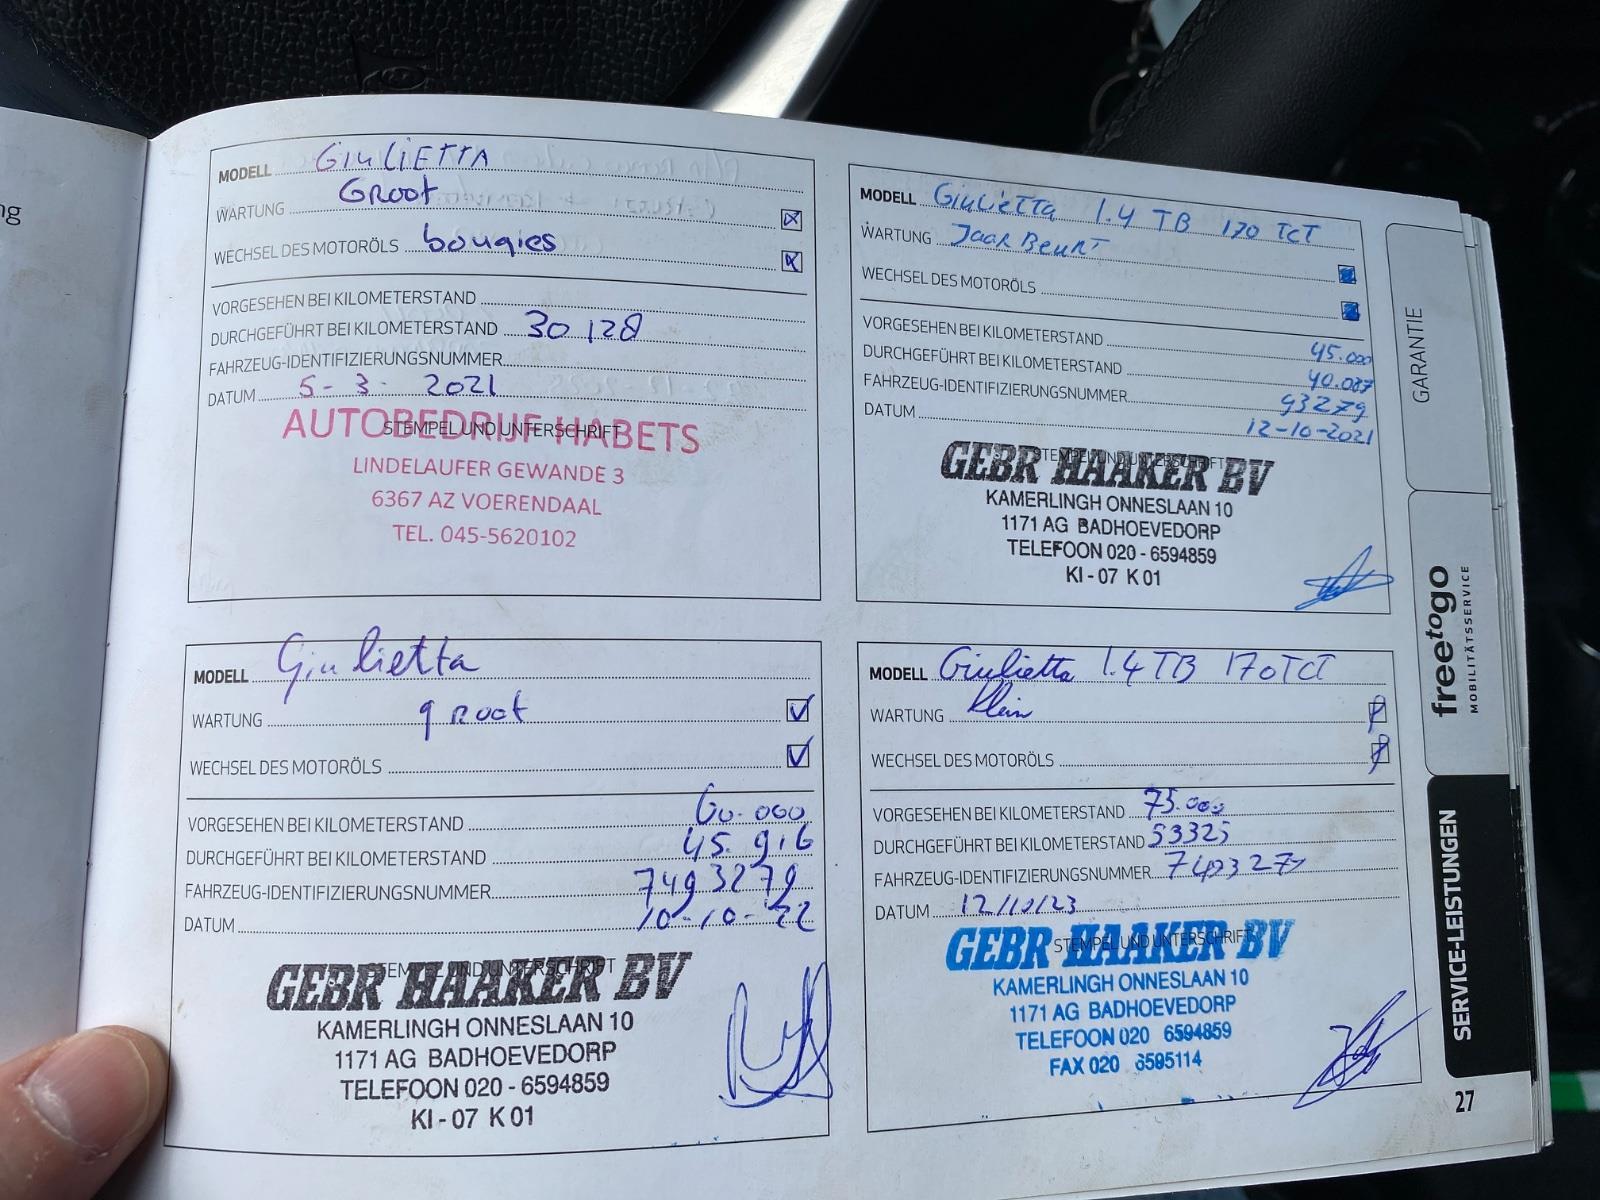 ng
MODELL GIULIETTA
WARTUNG GROOT
WECHSEL DES MOTORÖLS bougies
VORGESEHEN BEI KILOMETERSTAND
DURCHGEFÜHRT BEI KILOMETERSTAND 30128
FAHRZEUG-IDENTIFIZIERUNGSNUMMER
DATUM 5-3-2021
STEMPEL UND UNTERSCHRIFT
AUTOBEDRIJF HABETS
LINDELAUFER GEWANDE 3
6367 AZ VOERENDAAL
TEL. 045-5620102
MODELL Giulietta 1.4 TB 170 TCT
WARTUNG JaarBeurt
WECHSEL DES MOTORÖLS
VORGESEHEN BEI KILOMETERSTAND 45.000
DURCHGEFÜHRT BEI KILOMETERSTAND 40.087
FAHRZEUG-IDENTIFIZIERUNGSNUMMER 93279
DATUM 12-10-2021
STEMPEL UND UNTERSCHRIFT
GEBR HAAKER BV
KAMERLINGH ONNESLAAN 10
1171 AG BADHOEVEDORP
TELEFOON 020 - 6594859
KI - 07 K 01
MODELL Giulietta
WARTUNG groot
WECHSEL DES MOTORÖLS
VORGESEHEN BEI KILOMETERSTAND 60.000
DURCHGEFÜHRT BEI KILOMETERSTAND 45.916
FAHRZEUG-IDENTIFIZIERUNGSNUMMER 7493279
DATUM 10-10-22
STEMPEL UND UNTERSCHRIFT
GEBR HAAKER BV
KAMERLINGH ONNESLAAN 10
1171 AG BADHOEVEDORP
TELEFOON 020 - 6594859
KI - 07 K 01
MODELL Giulietta 1.4 TB 170 TCT
WARTUNG klein
WECHSEL DES MOTORÖLS
VORGESEHEN BEI KILOMETERSTAND 75.000
DURCHGEFÜHRT BEI KILOMETERSTAND 53325
FAHRZEUG-IDENTIFIZIERUNGSNUMMER 7493279
DATUM 12/10/23
STEMPEL UND UNTERSCHRIFT
GEBR HAAKER BV
KAMERLINGH ONNESLAAN 10
1171 AG BADHOEVEDORP
TELEFOON 020 6594859
FAX 020 6595114
GARANTIE
freetogo
MOBILITÄTSSERVICE
SERVICE-LEISTUNGEN
27